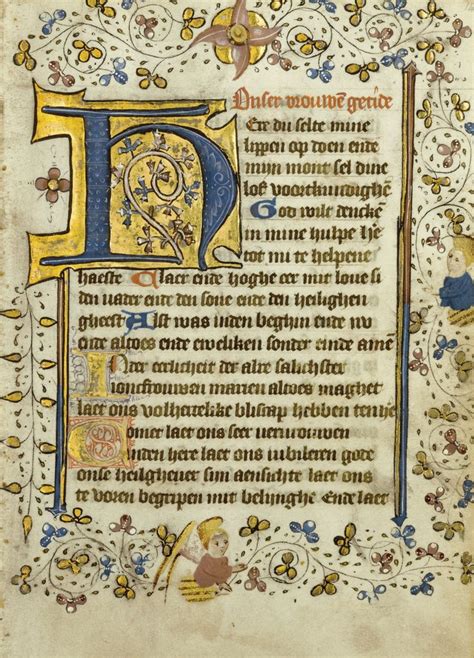 Onser vrouwē getide
Here du selte mine
lippen op doen ende
mijn mont sel dine
lof voortkundighē
God wilt dencken
in mine hulpe he
tot mi te helpene
haeste Claer ende hoghe eer mit loue si
den vader ende den sone ende den heilighen
gheest Alst was inden beghin ende nv
ende altoes ende eweliken sonder einde amē
Inder eerlicheit der alre salichster
ioncfrouwen marien altoes maghet
laet ons volhertelike bliscap hebben tenhe
Comet laet ons seer vervrouwen
inden here laet ons iubileren gode
onse heilghever sijn aensichte laet ons
te voren begripen mit belijnghe Ende laet